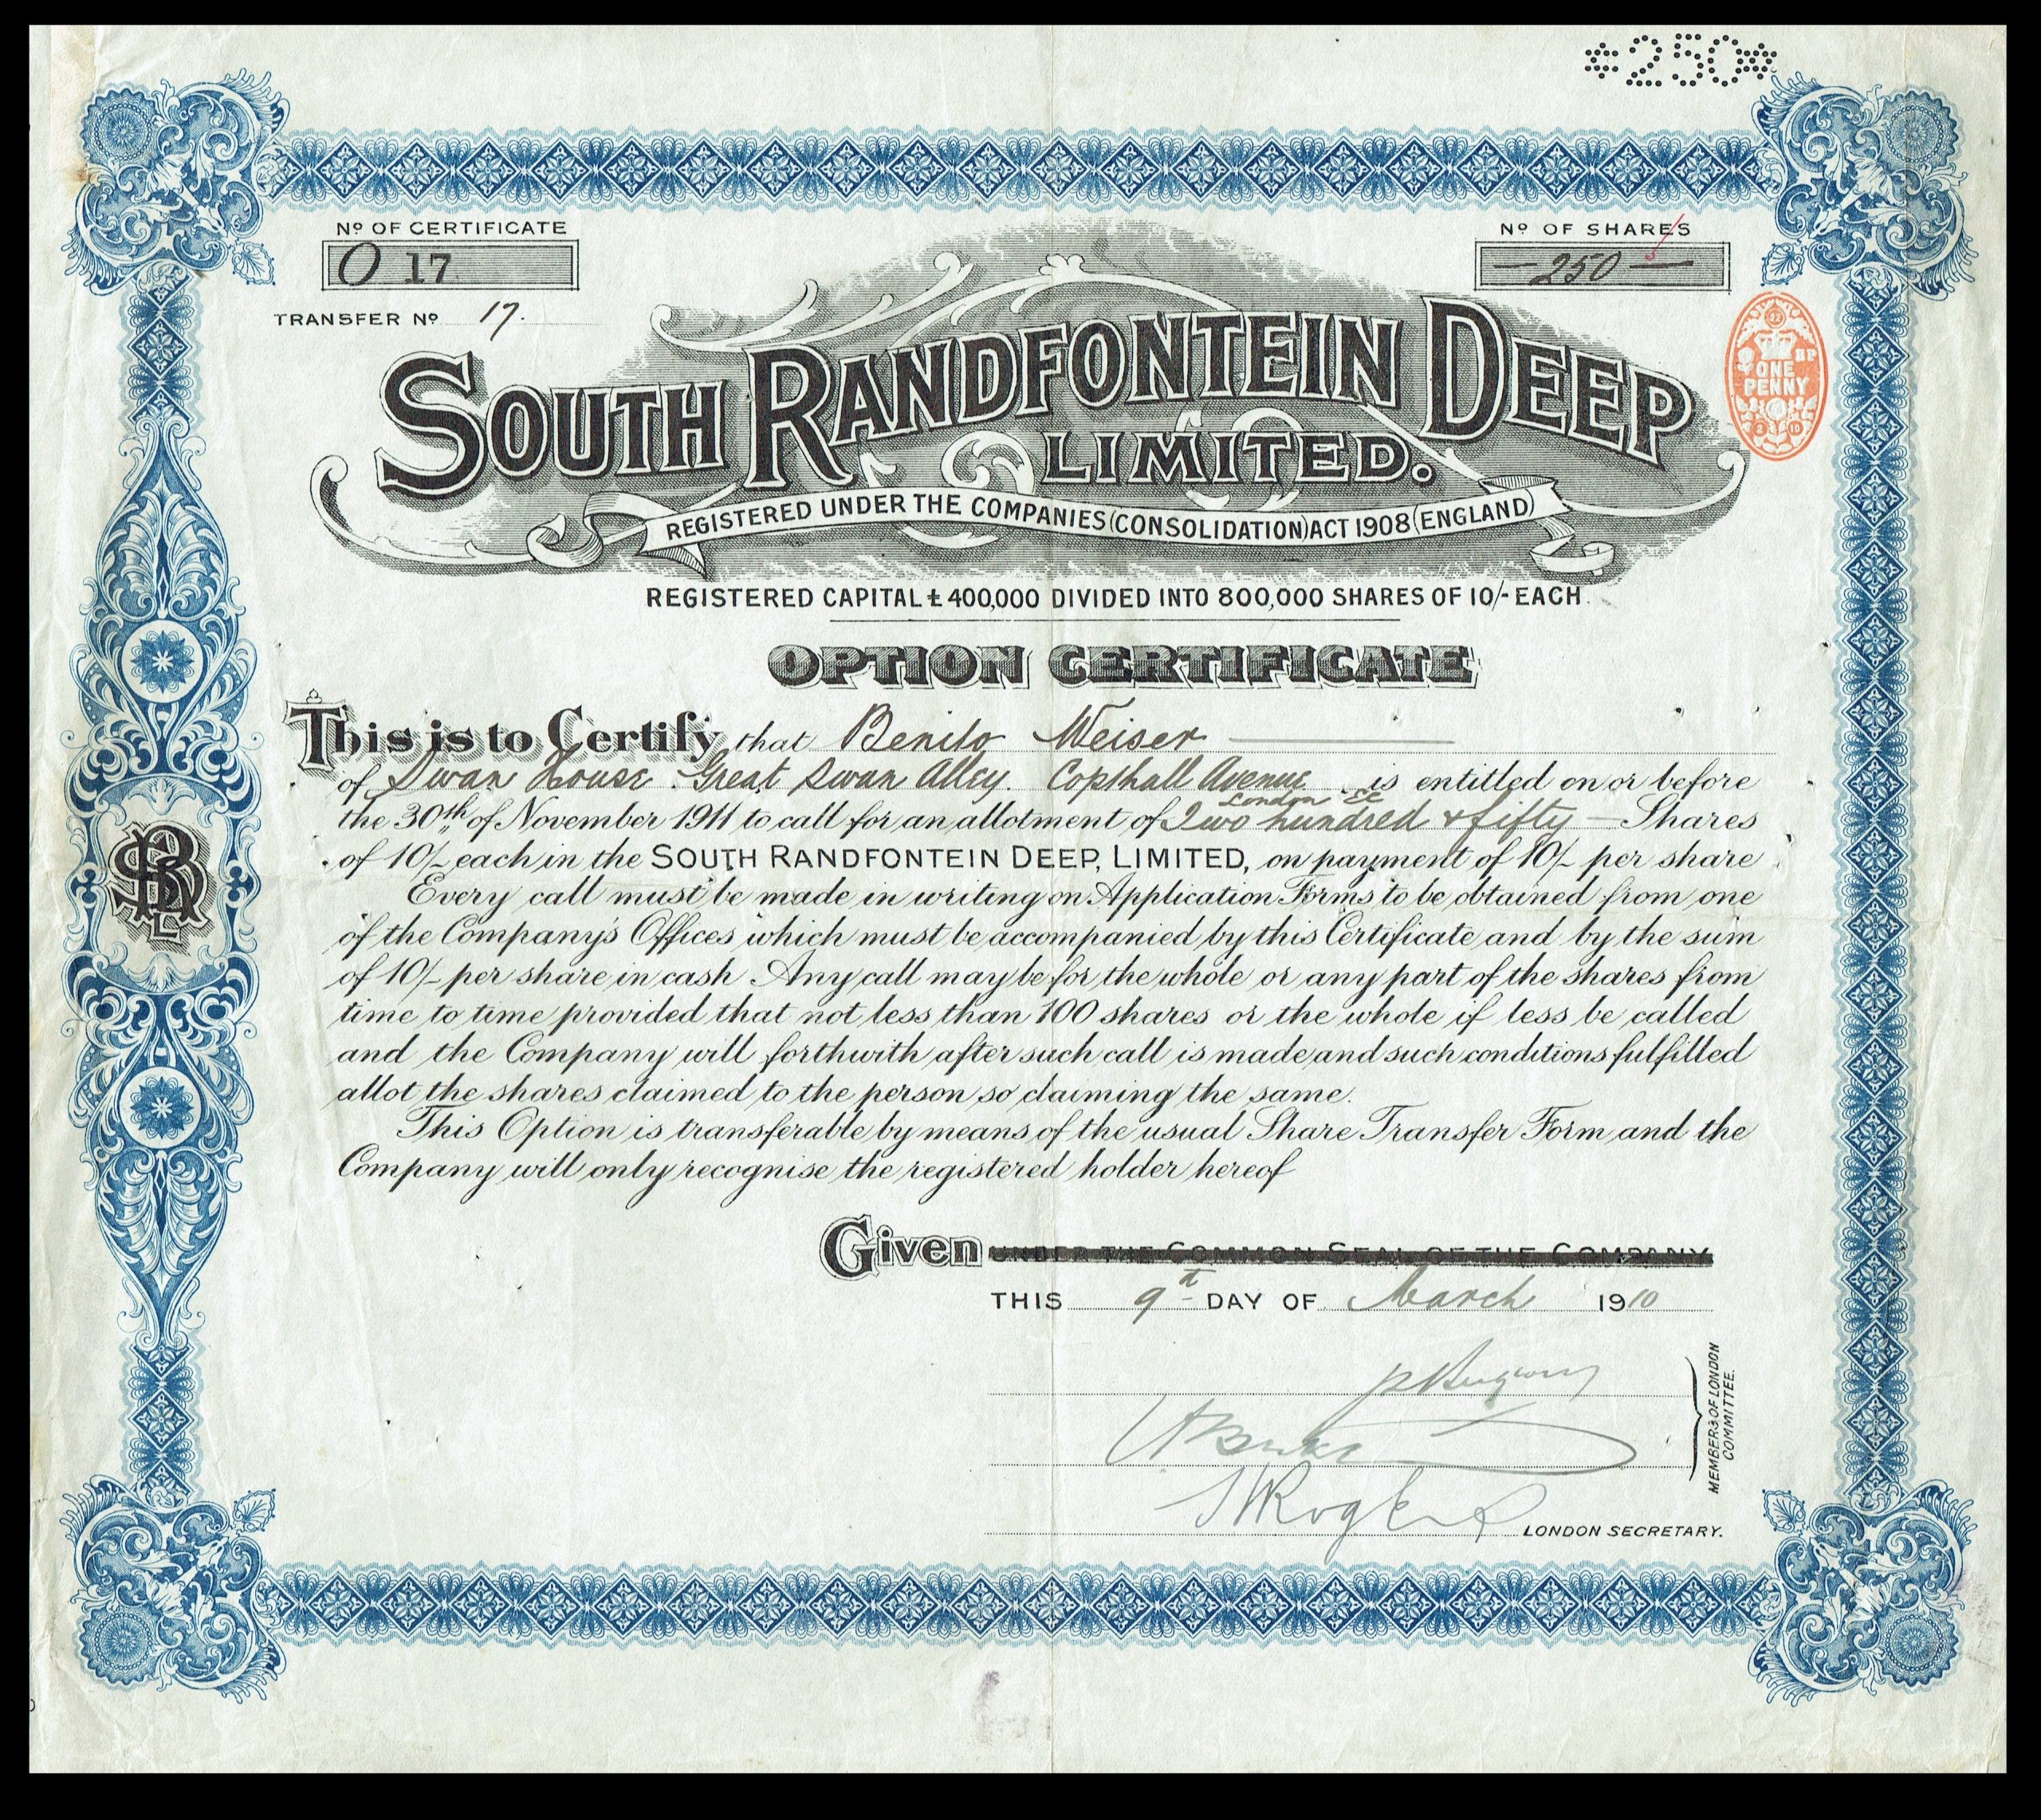 *250*
Nº OF CERTIFICATE
O 17
Nº OF SHARES
—250—
TRANSFER Nº 17.
22
BP
ONE
PENNY
2 10
SOUTH RANDFONTEIN DEEP
LIMITED.
REGISTERED UNDER THE COMPANIES (CONSOLIDATION) ACT 1908 (ENGLAND)
REGISTERED CAPITAL £400,000 DIVIDED INTO 800,000 SHARES OF 10/- EACH.
OPTION CERTIFICATE
This is to Certify that Benito Weiser
of Swan House. Great Swan Alley. Copthall Avenue is entitled on or before
London EC
the 30th of November 1911 to call for an allotment of Two hundred & fifty — Shares
of 10/- each in the SOUTH RANDFONTEIN DEEP, LIMITED, on payment of 10/- per share
Every call must be made in writing on Application Forms to be obtained from one
of the Company's Offices which must be accompanied by this Certificate and by the sum
of 10/- per share in cash. Any call may be for the whole or any part of the shares from
time to time provided that not less than 100 shares or the whole if less be called
and the Company will forthwith after such call is made and such conditions fulfilled
allot the shares claimed to the person so claiming the same.
This Option is transferable by means of the usual Share Transfer Form and the
Company will only recognise the registered holder hereof
Given UNDER THE COMMON SEAL OF THE COMPANY
THIS 9th DAY OF March 1910
MEMBERS OF LONDON
COMMITTEE.
LONDON SECRETARY.